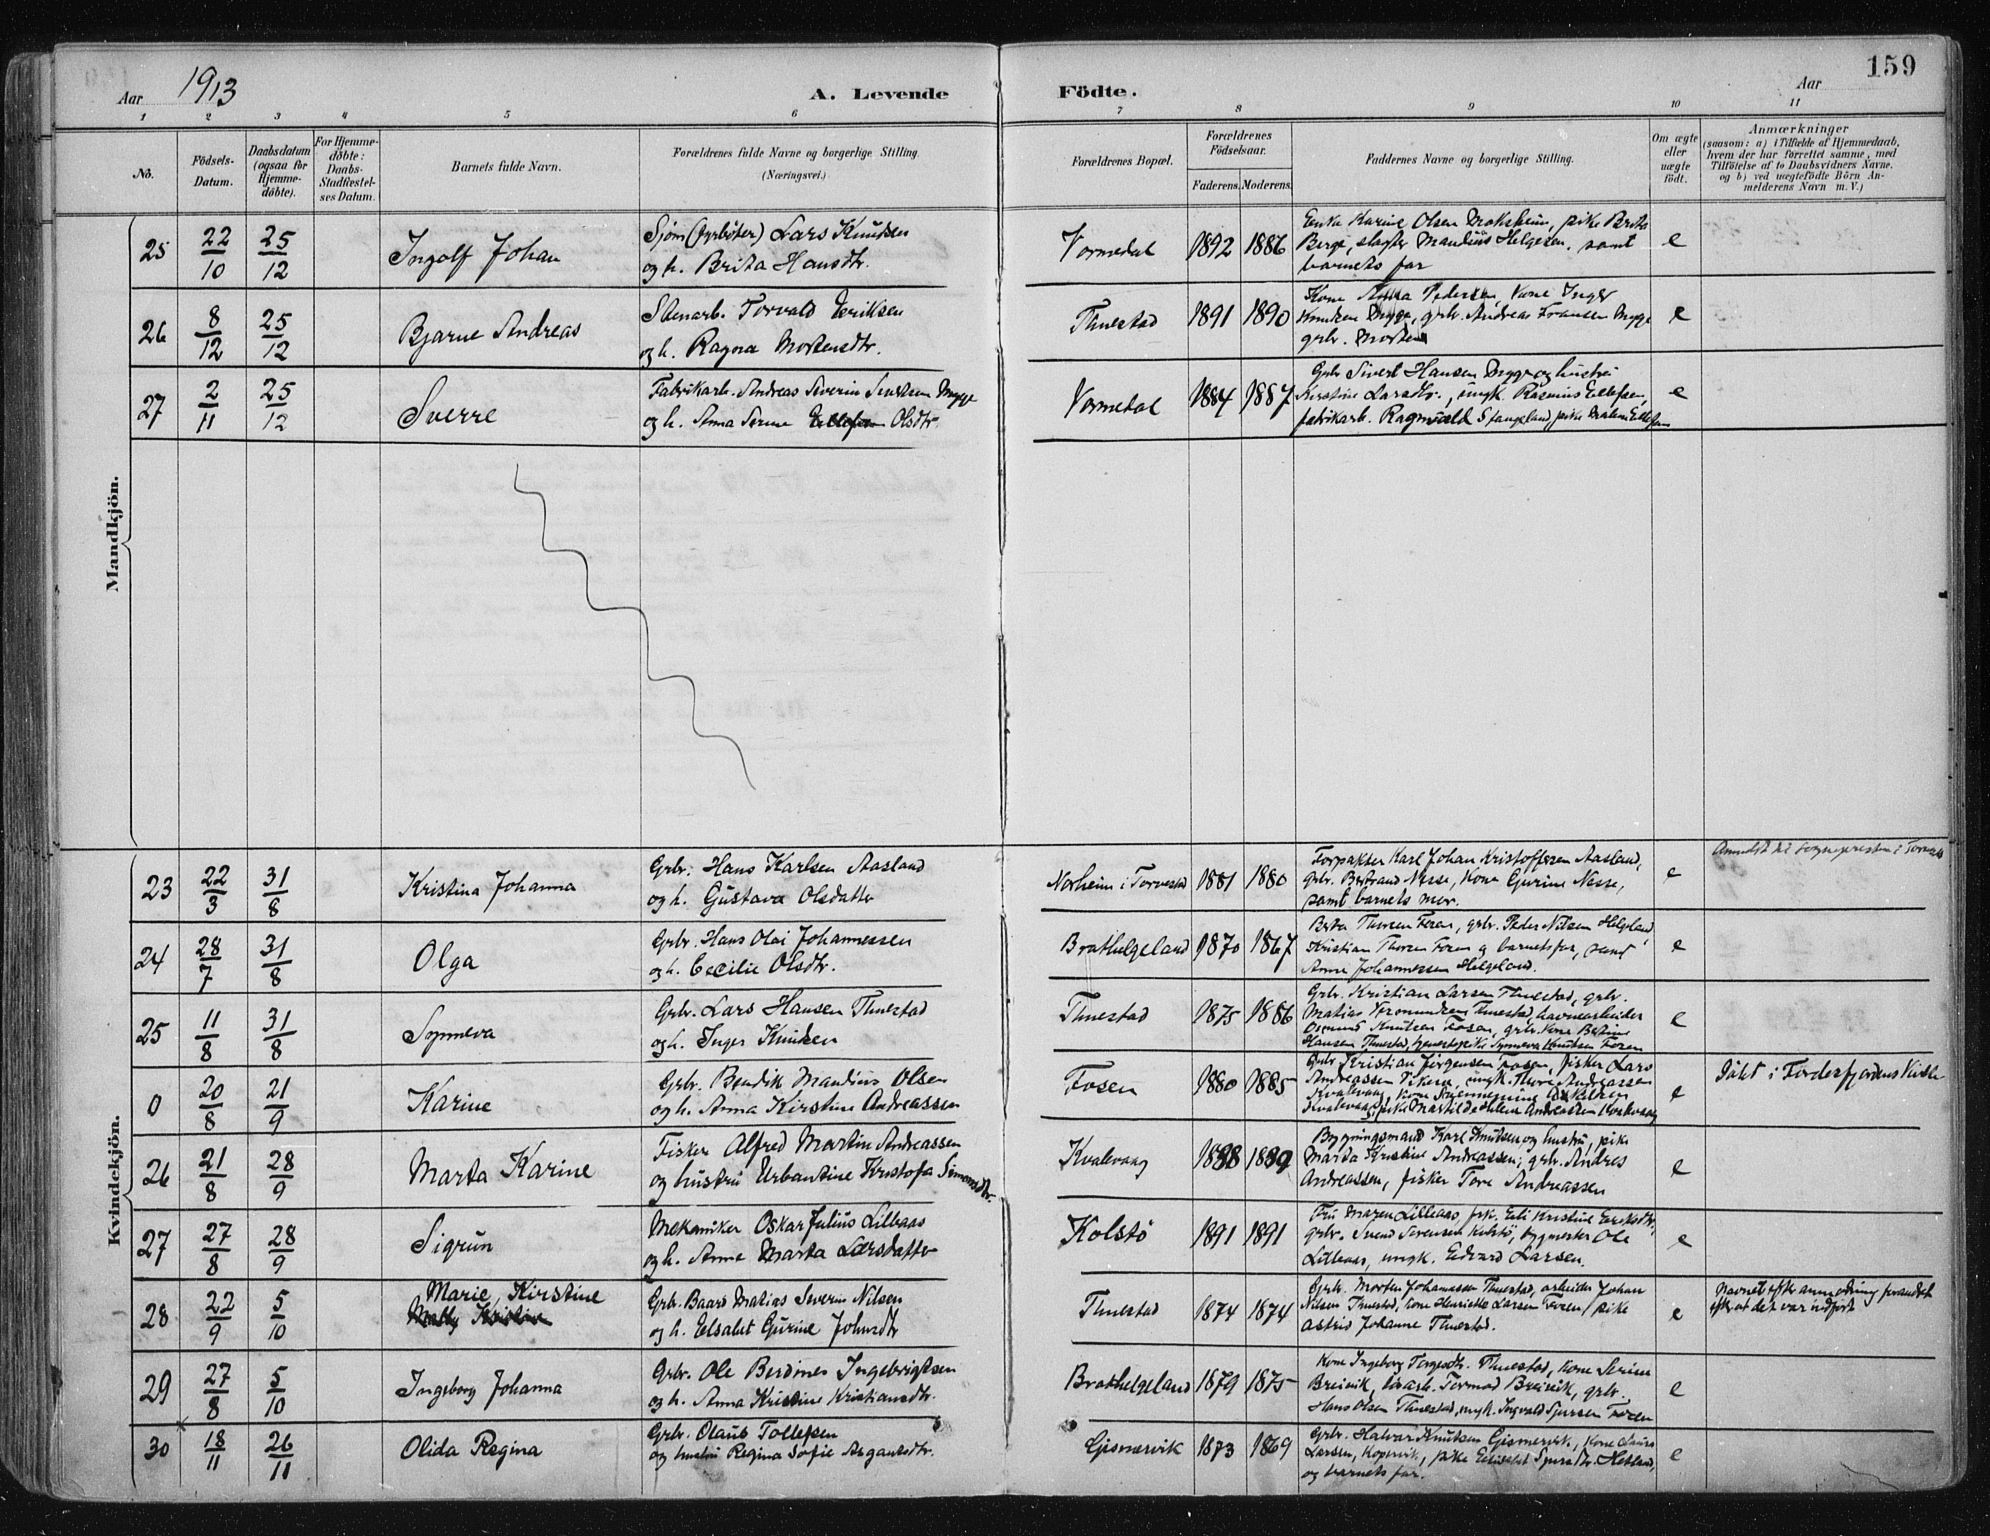 159
Aar 1913
A. Levende
Födte.
Aar
1 2 3 4 5 6 7 8 9 10 11
No.
Födsels-Datum.
Daabsdatum (ogsaa for Hjemme-döbte).
For Hjemme-döbte: Daabs-Stadfæstel-ses Datum.
Barnets fulde Navn.
Forældrenes fulde Navne og borgerlige Stilling.
(Næringsvei.)
Forældrenes Bopæl.
Forældrenes Födselsaar.
Faderens. Moderens.
Faddernes Navne og borgerlig Stilling.
Om ægte eller uægte födt.
Anmærkninger
(saasom: a) i Tilfælde af Hjemmedaab,
hvem der har forrettet samme, med
Tilföielse af to Daabsvidners Navne,
og b) ved uægtefödte Börn An-
melderens Navn m. V.)
Mandkjön.
25 22/10 25/12 Ingolf Johan
Sjöm (fyrböter) Lars Knudsen
og h. Brita Hansdtr.
Vormedal 1892 1886
Enke Karine Olsen, pike Brita
Berge, slagter Mandius Helgesen, samt
barnets far
e
26 8/12 25/12 Bjarne Andreas
Stenarb. Torvald Eriksen
og h. Ragna Mortensdtr.
Thuestad 1891 1890
Kone Anna Pedersen, Kone Inger
Knudsen Mygge, grbr. Andreas Fransen Mygge
grbr. Morten
e
27 2/11 25/12 Sverre
Fabrikarb. Andreas Severin Mygge
og h. Anna Serine Ellefsen Olsdtr.
Vormedal 1884 1887
Grbr Sivert Hansen Mygge og hustru
Kirstine Larsdtr., ungk. Rasmus Ellefsen,
fabrikarb. Ragnvald Stangeland, pike Malene Ellefsen
e
Kvindekjön.
23 22/3 31/8 Kristina Johanna
Grbr. Hans Karlsen Aasland
og h. Gustava Olsdatter
Norheim i Torvestad 1881 1880
Forpakter Karl Johan Kristoffersen Aasland,
grbr. Bertrand Nesse, Kone Gurine Nesse,
samt barnets mor.
e
Anmeldt til sognepresten i Torvestad
24 28/7 31/8 Olga
Grbr. Hans Olai Johannessen
og h. Cecilie Olsdtr.
Brathelgeland 1870 1867
Berta Thorsen Fosen, grbr. Peder Nilsen Helgeland,
Kristian Thorsen Fosen og barnets far, samt
Anna Johannessen Helgeland.
e
25 11/8 31/8 Synneva
Grbr. Lars Hansen Thuestad
og h. Inger Knudsen
Thuestad 1875 1886
Grbr. Kristian Larsen Thuestad, grbr.
Matias Thuestad, havnearbeider
Knutsen Fosen, grbr. Kone Bertine
Hansen Thuestad, tjenestepike Synneva Knutsen Fosen
e
0 20/8 21/9 Karine
Grbr. Bendik Mandius Olsen
og h. Anna Kirstine Andreassen
Fosen 1880 1885
Grbr. Kristian Jörgensen Fosen, fisker Lars
Andreassen, ungk. Thore Andreassen
Kvalevaag, Kone
Kvalevaag, pike Matilde Helene Andreassen Kvalevaag
e
Döbt i Fördesfjordens Kirke
26 21/8 28/9 Marta Karine
Fisker Alfred Martin Andreassen
og hustru Urbantine Kristofa Simonsdtr.
Kvalevaag 1888 1889
Bygningsmand Karl Knutsen og hustru, pike
Marta Kristine Andreassen, grbr. Andres
Andreassen, fisker Tore Andreassen
e
27 27/8 28/9 Sigrun
Mekaniker Oskar Julius Lillaas
og h. Anna Marta Larsdatter
Kolstö 1891 1891
Fru Maren Lilleaas, frk. Eli Kristine Eriksdtr,
grbr. Svend Sörensen Kolstö, bygmester Ole
Lilleaas, ungk. Edvard Larsen.
e
28 22/9 5/10 Marie, Kirstine
Grbr. Baard Matias Severin Nilsen
og h. Elsabet Gurine Johnsdtr
Thuestad 1874 1874
Grbr. Morten Johannessen Thuestad, arbeider Johan
Nilsen Thuestad, kone Henriette Larsen Fosen, pike
Astrid Johanne Thuestad.
e
Navnet efter anmodning forandret
efter at det var indfört
29 27/8 5/10 Ingeborg Johanna
Grbr. Ole Berdines Ingebrigtsen
og h. Anna Kristine Kristiansdtr.
Brathelgeland 1879 1875
Kone Ingeborg Torgersdtr. Thuestad, kone Serine
Breivik, Tormod Breivik, grbr.
Hans Olsen Thuestad, ungk. Ingvald Sjursen Fosen
e
30 18/11 26/11 Olida Regina
Grbr. Olaus Tollefsen
og hustru Regina Sofie Asgautsdtr.
Gismervik 1873 1869
Grbr. Halvar Knutsen Gismervik, kone Laura
Larsen, Kopervik, pike Elisabet Sjursdtr. Hetland,
og barnets far.
e